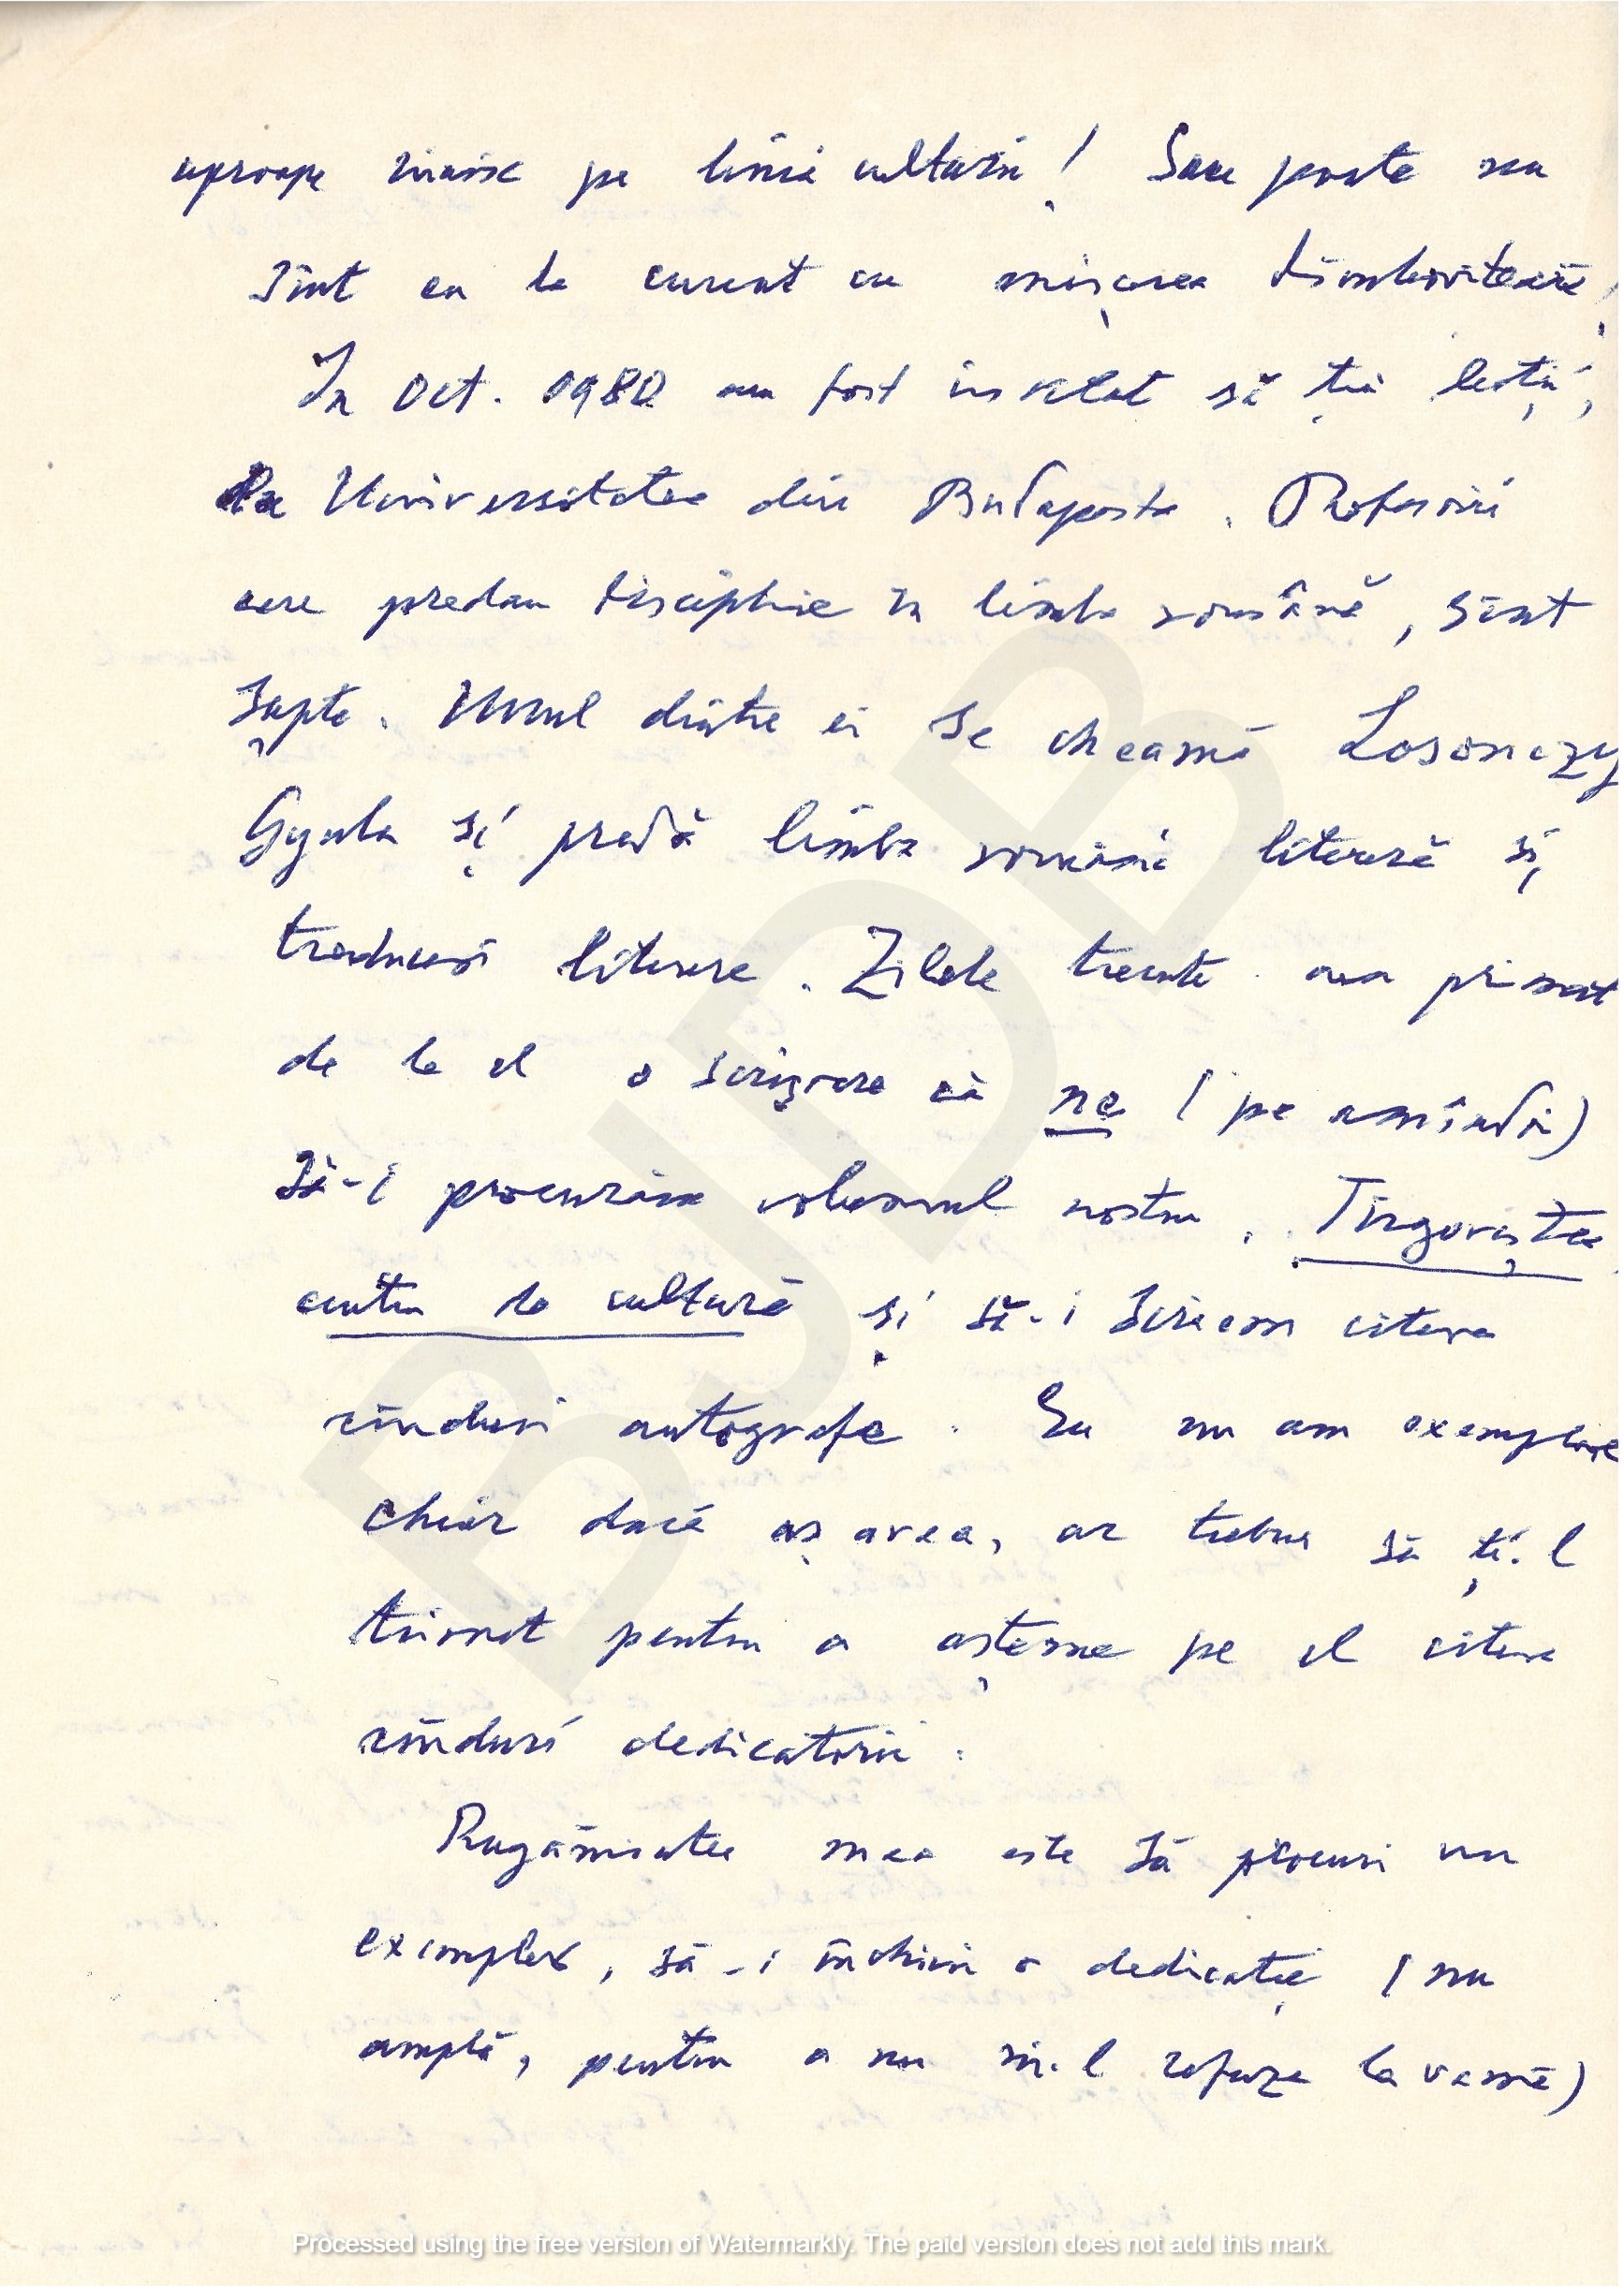 aproape nimic pe linia culturii! Sau poate nu
sînt eu la curent cu mișcarea dîmbovițeană!
In Oct. 1980 am fost invitat să țin lecții,
la Universitatea din Budapesta. Profesorii
care predau discipline în limba română, sînt
șapte. Unul dintre ei se cheamă Losonczy
Gyula și predă limba română literară și
traduceri literare. Zilele trecute am primit
de la el o scrisoare că ne (pe amîndoi)
să-i procurăm volumul nostru, Tîrgoviștea
centru de cultură și să-i scriem cîteva
rînduri autografe. Eu nu am exemplare
chiar dacă aș avea, ar trebui să ți-l
trimit pentru a așterne pe el cîteva
rînduri dedicatorii.
Rugămintea mea este să procuri un
exemplar, să-i închini o dedicație (nu
amplă, pentru a nu mi-l refuza la vamă)
BJDB
Processed using the free version of Watermarkly. The paid version does not add this mark.